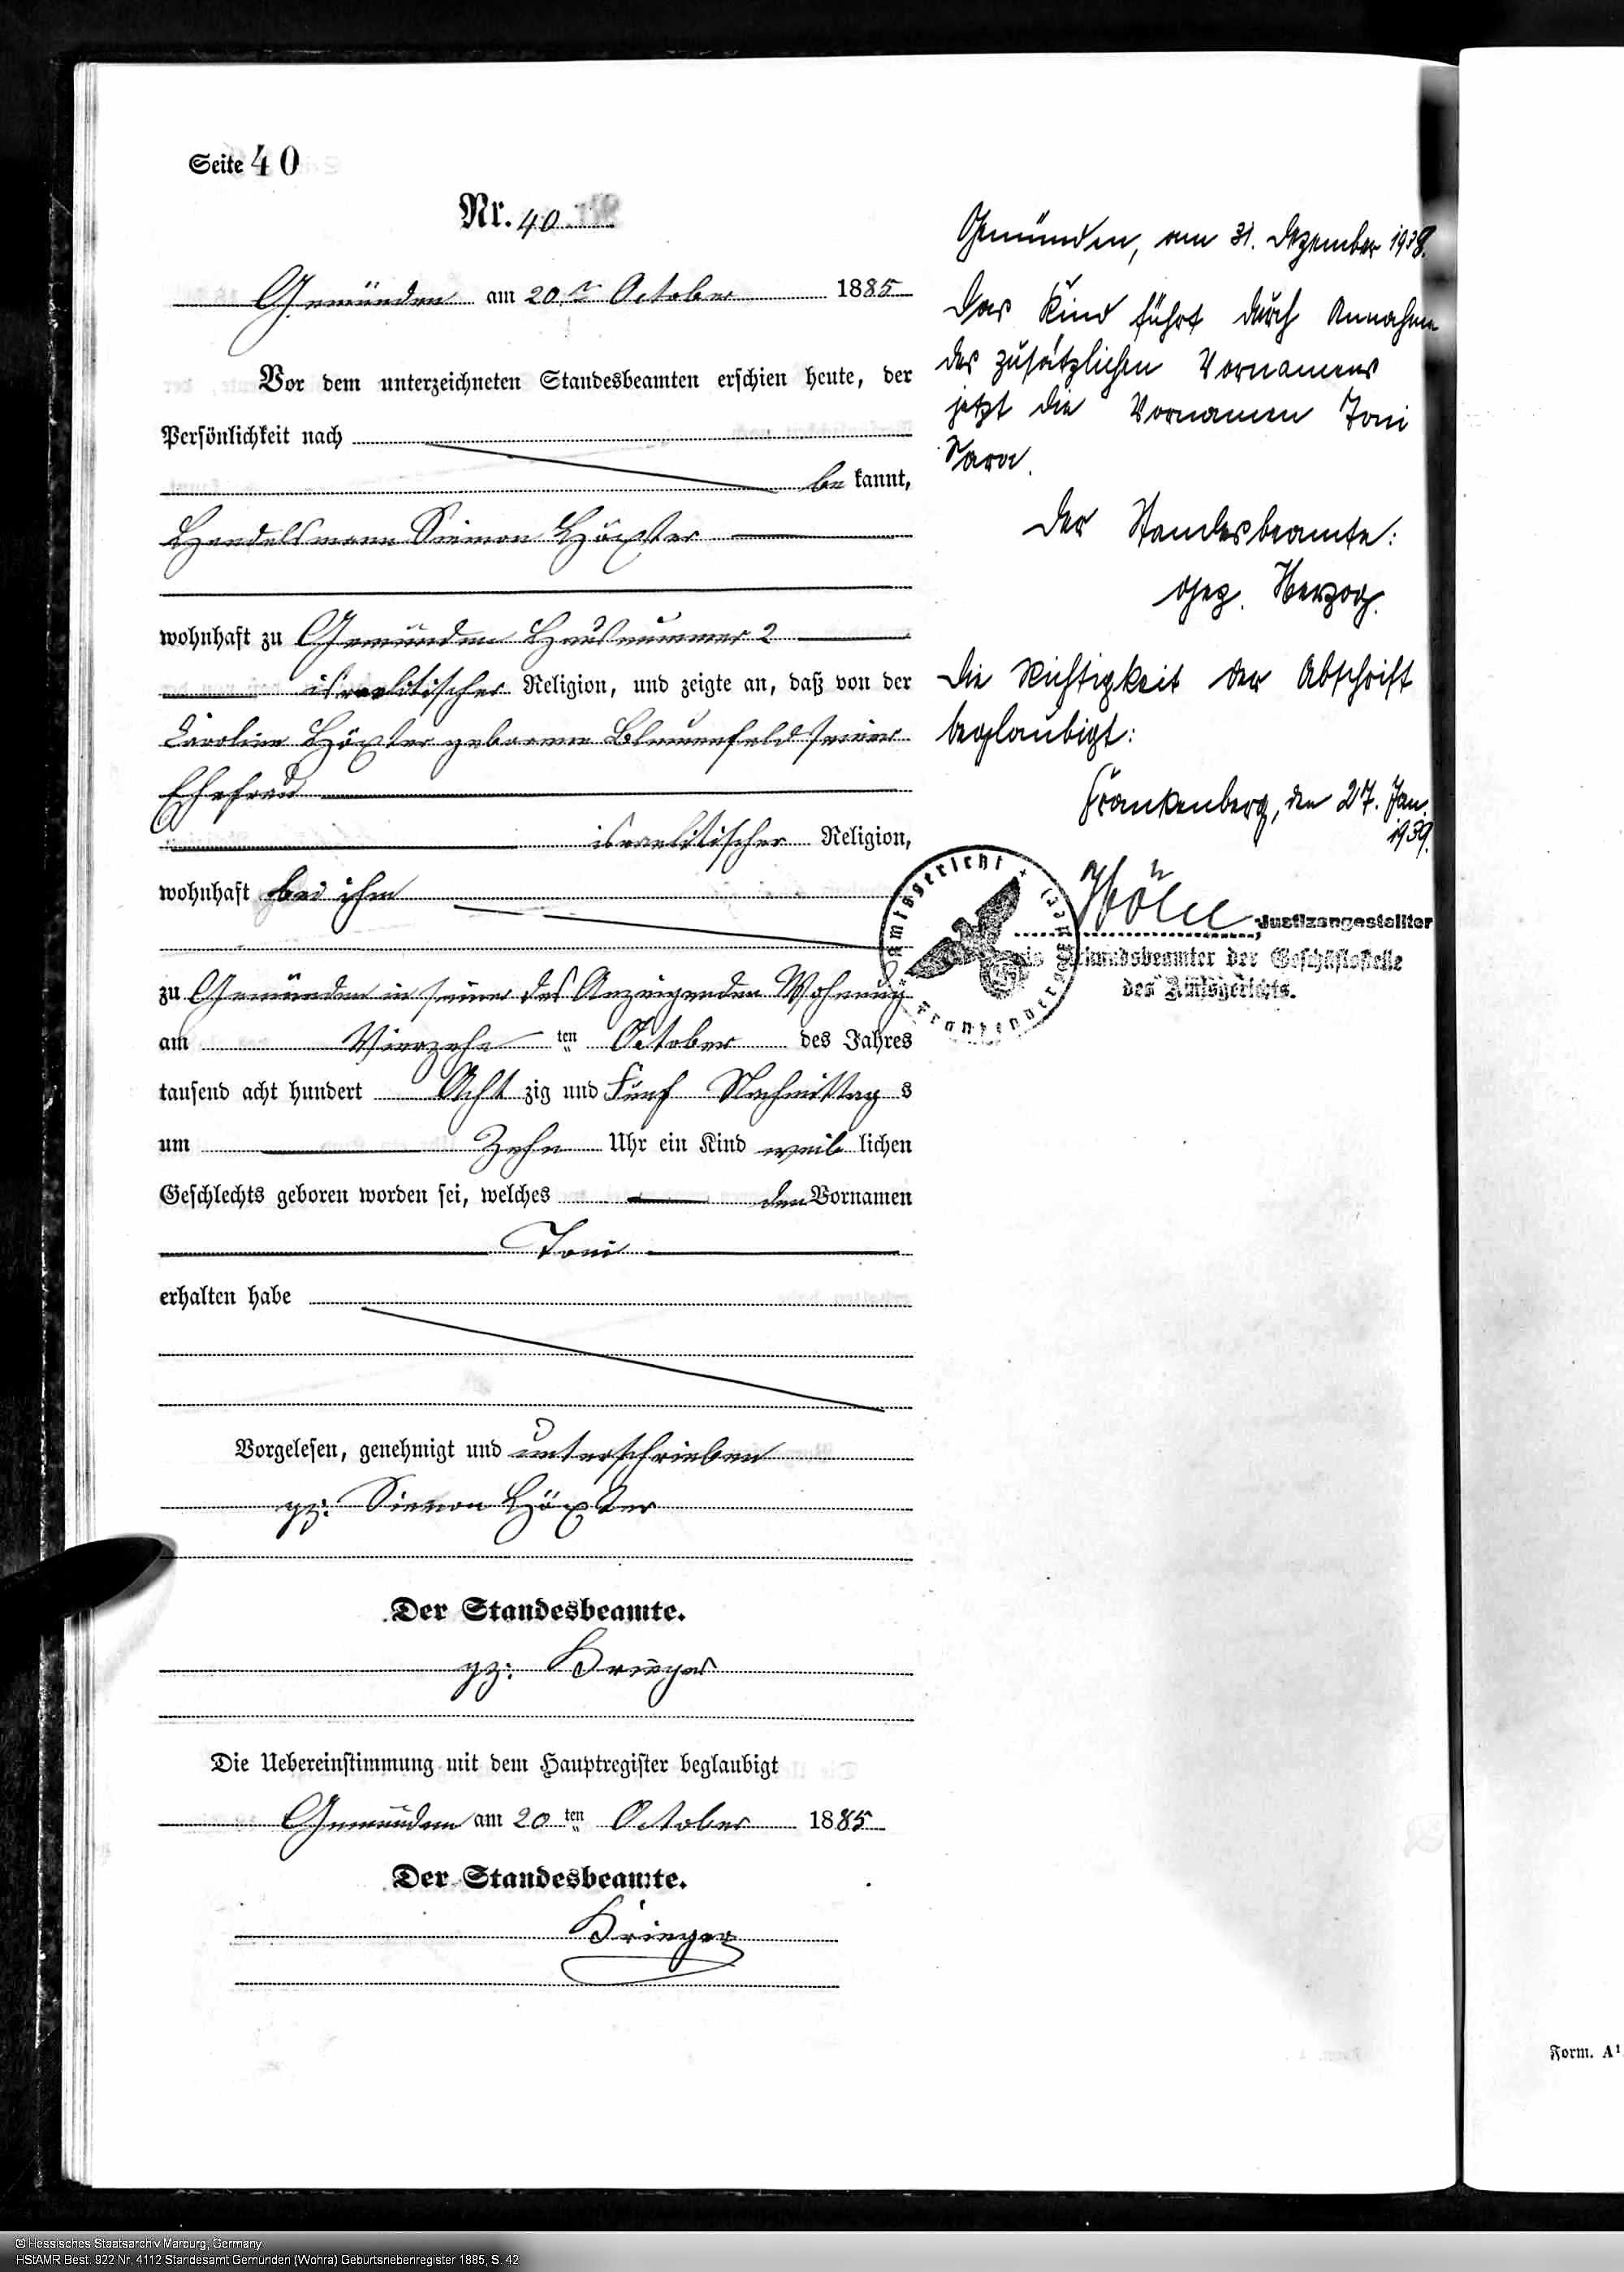 Seite 40
Nr. 40
Gemünden am 20.ten October 1885
Vor dem unterzeichneten Standesbeamten erschien heute, der
Persönlichkeit nach
be kannt,
Handelsmann Simon Höxter
wohnhaft zu Gemünden Hausnummer 2
israelitischer Religion, und zeigte an, daß von der
Caroline Höxter geborene Blumenfeld seiner
Ehefrau
israelitischer Religion,
wohnhaft bei ihm
zu Gemünden in seiner des Anzeigenden Wohnung
am Vierzehn ten October des Jahres
tausend acht hundert Acht zig und Fünf Nachmittag s
um Zehn Uhr ein Kind weib lichen
Geschlechts geboren worden sei, welches den Vornamen
Toni
erhalten habe
Vorgelesen, genehmigt und unterschrieben
gz: Simon Höxter
Der Standesbeamte.
gz: Krieger
Die Uebereinstimmung mit dem Hauptregister beglaubigt
Gemünden am 20 ten October 1885
Der Standesbeamte.
Krieger
Gemünden, am 31. Dezember 1938.
Das Kind führt durch Annahme
des zusätzlichen Vornamens
jetzt die Vornamen Toni
Sara.
Der Standesbeamte:
gez. Herzog.
Die Richtigkeit der Abschrift
beglaubigt:
Frankenberg, den 27. Jan.
1939.
Justizangestellter
als Urkundsbeamter der Geschäftsstelle
des Amtsgerichts.
Amtsgericht
Frankenberg
Form. A1
© Hessisches Staatsarchiv Marburg, Germany
HStAMR Best. 922 Nr. 4112 Standesamt Gemünden (Wohra) Geburtsnebenregister 1885, S. 42